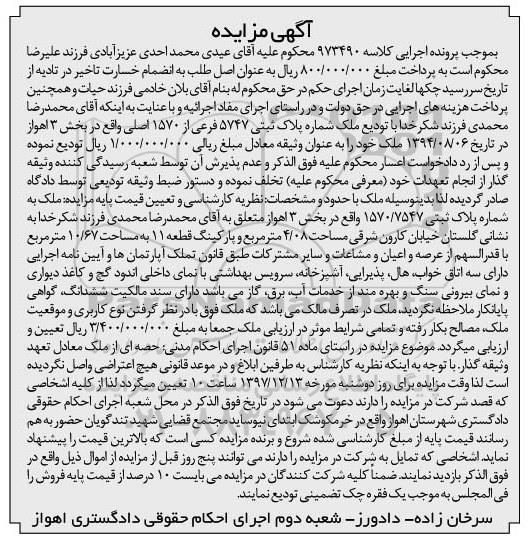 آگهی مزایده
بموجب پرونده اجرایی کلاسه ۹۷۳۴۹۰ محکوم علیه آقای عیدی محمد احدی عزیزآبادی فرزند علیرضا
محکوم است به پرداخت مبلغ ۸۰۰/۰۰۰/۰۰۰ ریال به عنوان اصل طلب به انضمام خسارت تاخیر در تادیه از
تاریخ سررسید چکها لغایت زمان اجرای حکم در حق محکوم له بنام آقای بلان خادمی فرزند حیات و همچنین
پرداخت هزینه های اجرایی در حق دولت و در راستای اجرای مفاد اجرائیه و با عنایت به اینکه آقای محمدرضا
محمدی فرزند شکرخدا با تودیع ملک شماره پلاک ثبتی ۵۷۴۷ فرعی از ۱۵۷۰ اصلی واقع در بخش ۳ اهواز
در تاریخ ۱۳۹۴/۰۸/۰۶ ملک خود را به عنوان وثیقه معادل مبلغ ریالی ۱/۰۰۰/۰۰۰/۰۰۰ ریال تودیع نموده
و پس از رد دادخواست اعسار محکوم علیه فوق الذکر و عدم پذیرش آن توسط شعبه رسیدگی کننده وثیقه
گذار از انجام تعهدات خود (معرفی محکوم علیه) تخلف نموده و دستور ضبط وثیقه تودیعی توسط دادگاه
صادر گردیده لذا بدینوسیله ملک با حدود و مشخصات: نظریه کارشناسی و تعیین قیمت پایه مزایده: ملک به
شماره پلاک ثبتی ۱۵۷۰/۷۵۴۷ واقع در بخش ۳ اهواز متعلق به آقای محمدرضا محمدی فرزند شکرخدا به
نشانی گلستان خیابان کارون شرقی مساحت ۴/۰۸ مترمربع و پارکینگ قطعه ۱۱ به مساحت ۱۰/۶۷ مترمربع
با قدرالسهم از عرصه و اعیان و مشاعات و سایر مشترکات طبق قانون تملک آپارتمان ها و آیین نامه اجرایی
دارای سه اتاق خواب، هال، پذیرایی، آشپزخانه، سرویس بهداشتی با نمای داخلی اندود گچ و کاغذ دیواری
و نمای بیرونی سنگ و بهره مند از خدمات آب، برق، گاز می باشد دارای سند مالکیت ششدانگ، گواهی
پایانکار ملاحظه نگردید، ملک در تصرف مالک می باشد که ملک فوق با در نظر گرفتن نوع کاربری و موقعیت
ملک، مصالح بکار رفته و تمامی شرایط موثر در ارزیابی ملک جمعا به مبلغ ۳/۴۰۰/۰۰۰/۰۰۰ ریال تعیین و
ارزیابی میگردد. موضوع مزایده در راستای ماده ۵۱ قانون اجرای احکام مدنی: حصه ای از ملک معادل تعهد
وثیقه گذار. با توجه به اینکه نظریه کارشناس به طرفین ابلاغ و در موعد قانونی هیچ اعتراضی واصل نگردیده
است لذا وقت مزایده برای روز دوشنبه مورخه ۱۳۹۷/۱۲/۱۳ ساعت ۱۰ تعیین میگردد لذا از کلیه اشخاصی
که قصد شرکت در مزایده را دارند دعوت می شود در تاریخ فوق الذکر در محل شعبه اجرای احکام حقوقی
دادگستری شهرستان اهواز واقع در خرمکوشک ابتدای نیوساید مجتمع قضایی شهید تندگویان حضور به هم
رسانند قیمت پایه از مبلغ کارشناسی شده شروع و برنده مزایده کسی است که بالاترین قیمت را پیشنهاد
نماید. اشخاصی که تمایل به شرکت در مزایده را دارند می توانند پنج روز قبل از مزایده از اموال ذیل واقع در
فوق الذکر بازدید نمایند. ضمناً کلیه شرکت کنندگان در مزایده می بایست ۱۰ درصد از قیمت پایه فروش را
فی المجلس به موجب یک فقره چک تضمینی تودیع نمایند.
سرخان زاده- دادورز- شعبه دوم اجرای احکام حقوقی دادگستری اهواز